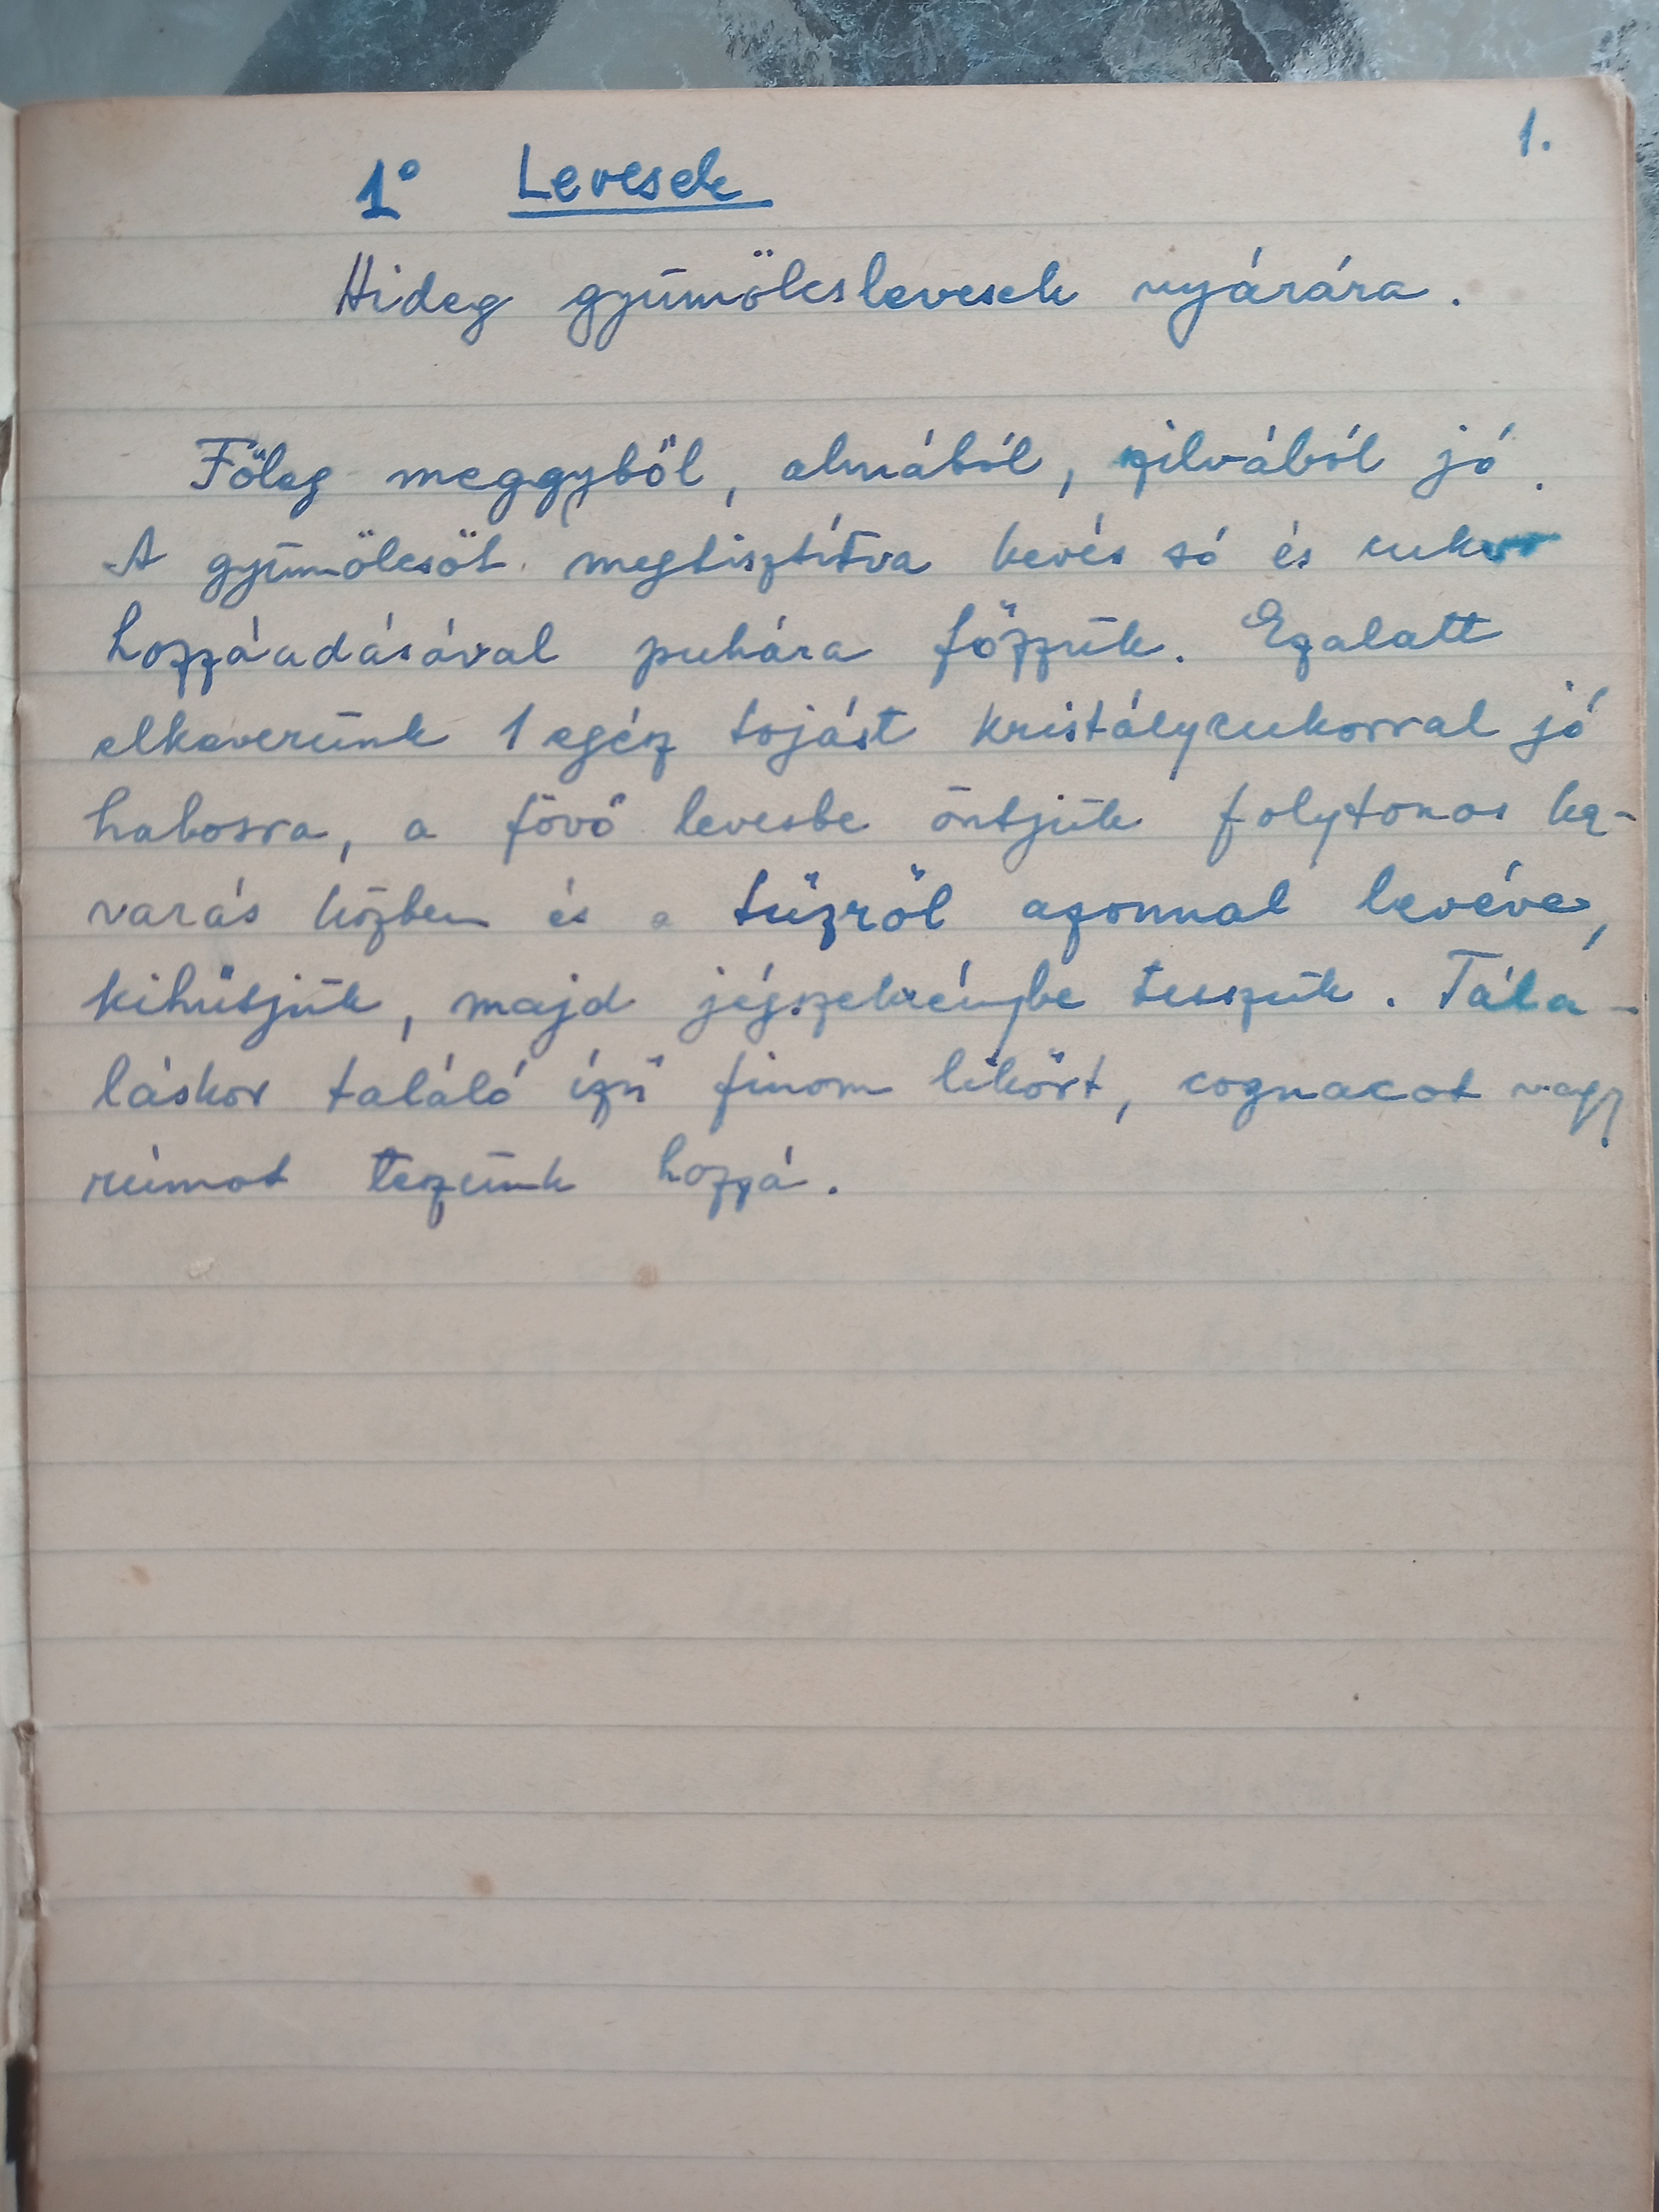 1.
1° Levesek
Hideg gyümölcslevesek nyárára.
Főleg meggyből, almából, szilvából jó.
A gyümölcsöt megtisztítva kevés só és cukor
hozzáadásával puhára főzzük. Ezalatt
elkeverünk 1 egész tojást kristálycukorral jó
habosra, a fövő levesbe öntjük folytonos ka-
varás közben és a tűzről azonnal levéve,
kihűtjük, majd jégszekrénybe tesszük. Tála-
láskor találó ízű finom likőrt, cognacot vagy
rumot teszünk hozzá.